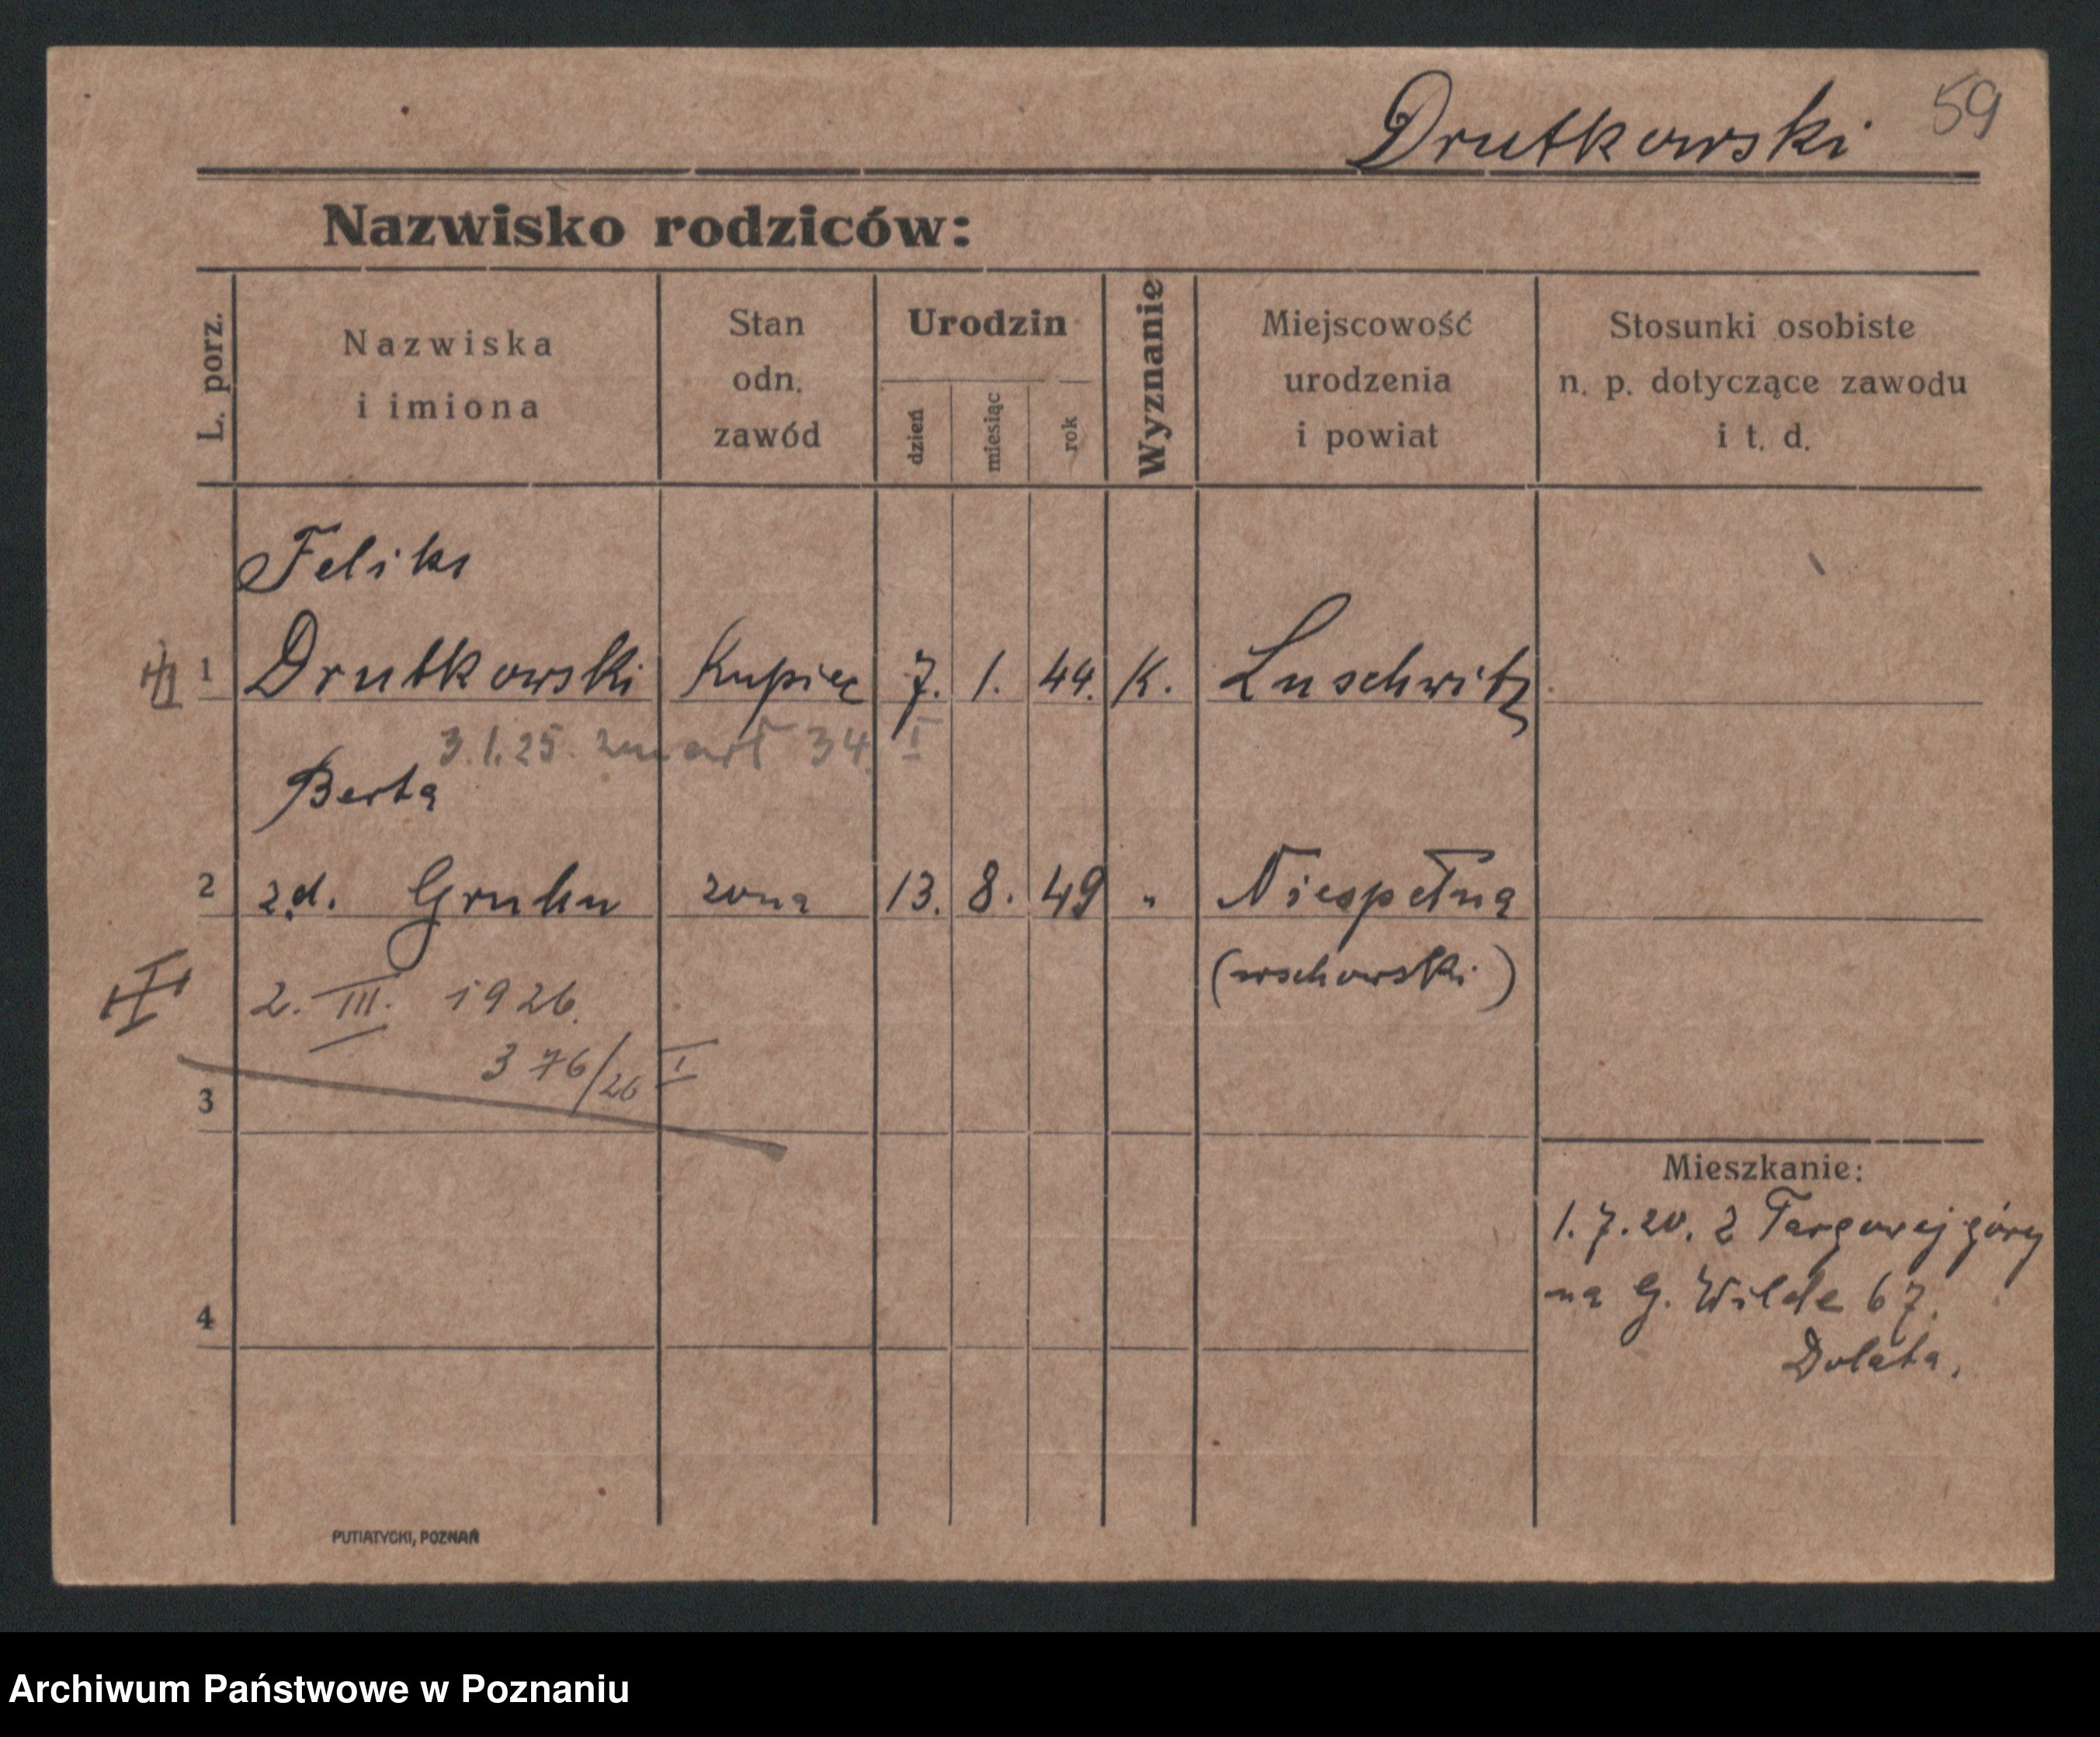 Drutkowski 59
Nazwisko rodziców:
L. porz.
Nazwiska
i imiona
Stan
odn.
zawód
Urodzin
dzień
miesiąc
rok
Wyznanie
Miejscowość
urodzenia
i powiat
Stosunki osobiste
n. p. dotyczące zawodu
i t. d.
Feliks
1 Drutkowski Kupiec 7. 1. 44. K. Luschwitz
3.1.25. zmarł 34 I
Berta
2 zd. Gruhn żona 13. 8. 49 " Niespełna
(wschowski)
2. III. 1926.
376/26 I
3
Mieszkanie:
1.7.20. z Targowej góry
na G. Wilde 67.
Dolata.
4
PUTIATYCKI, POZNAŃ
Archiwum Państwowe w Poznaniu